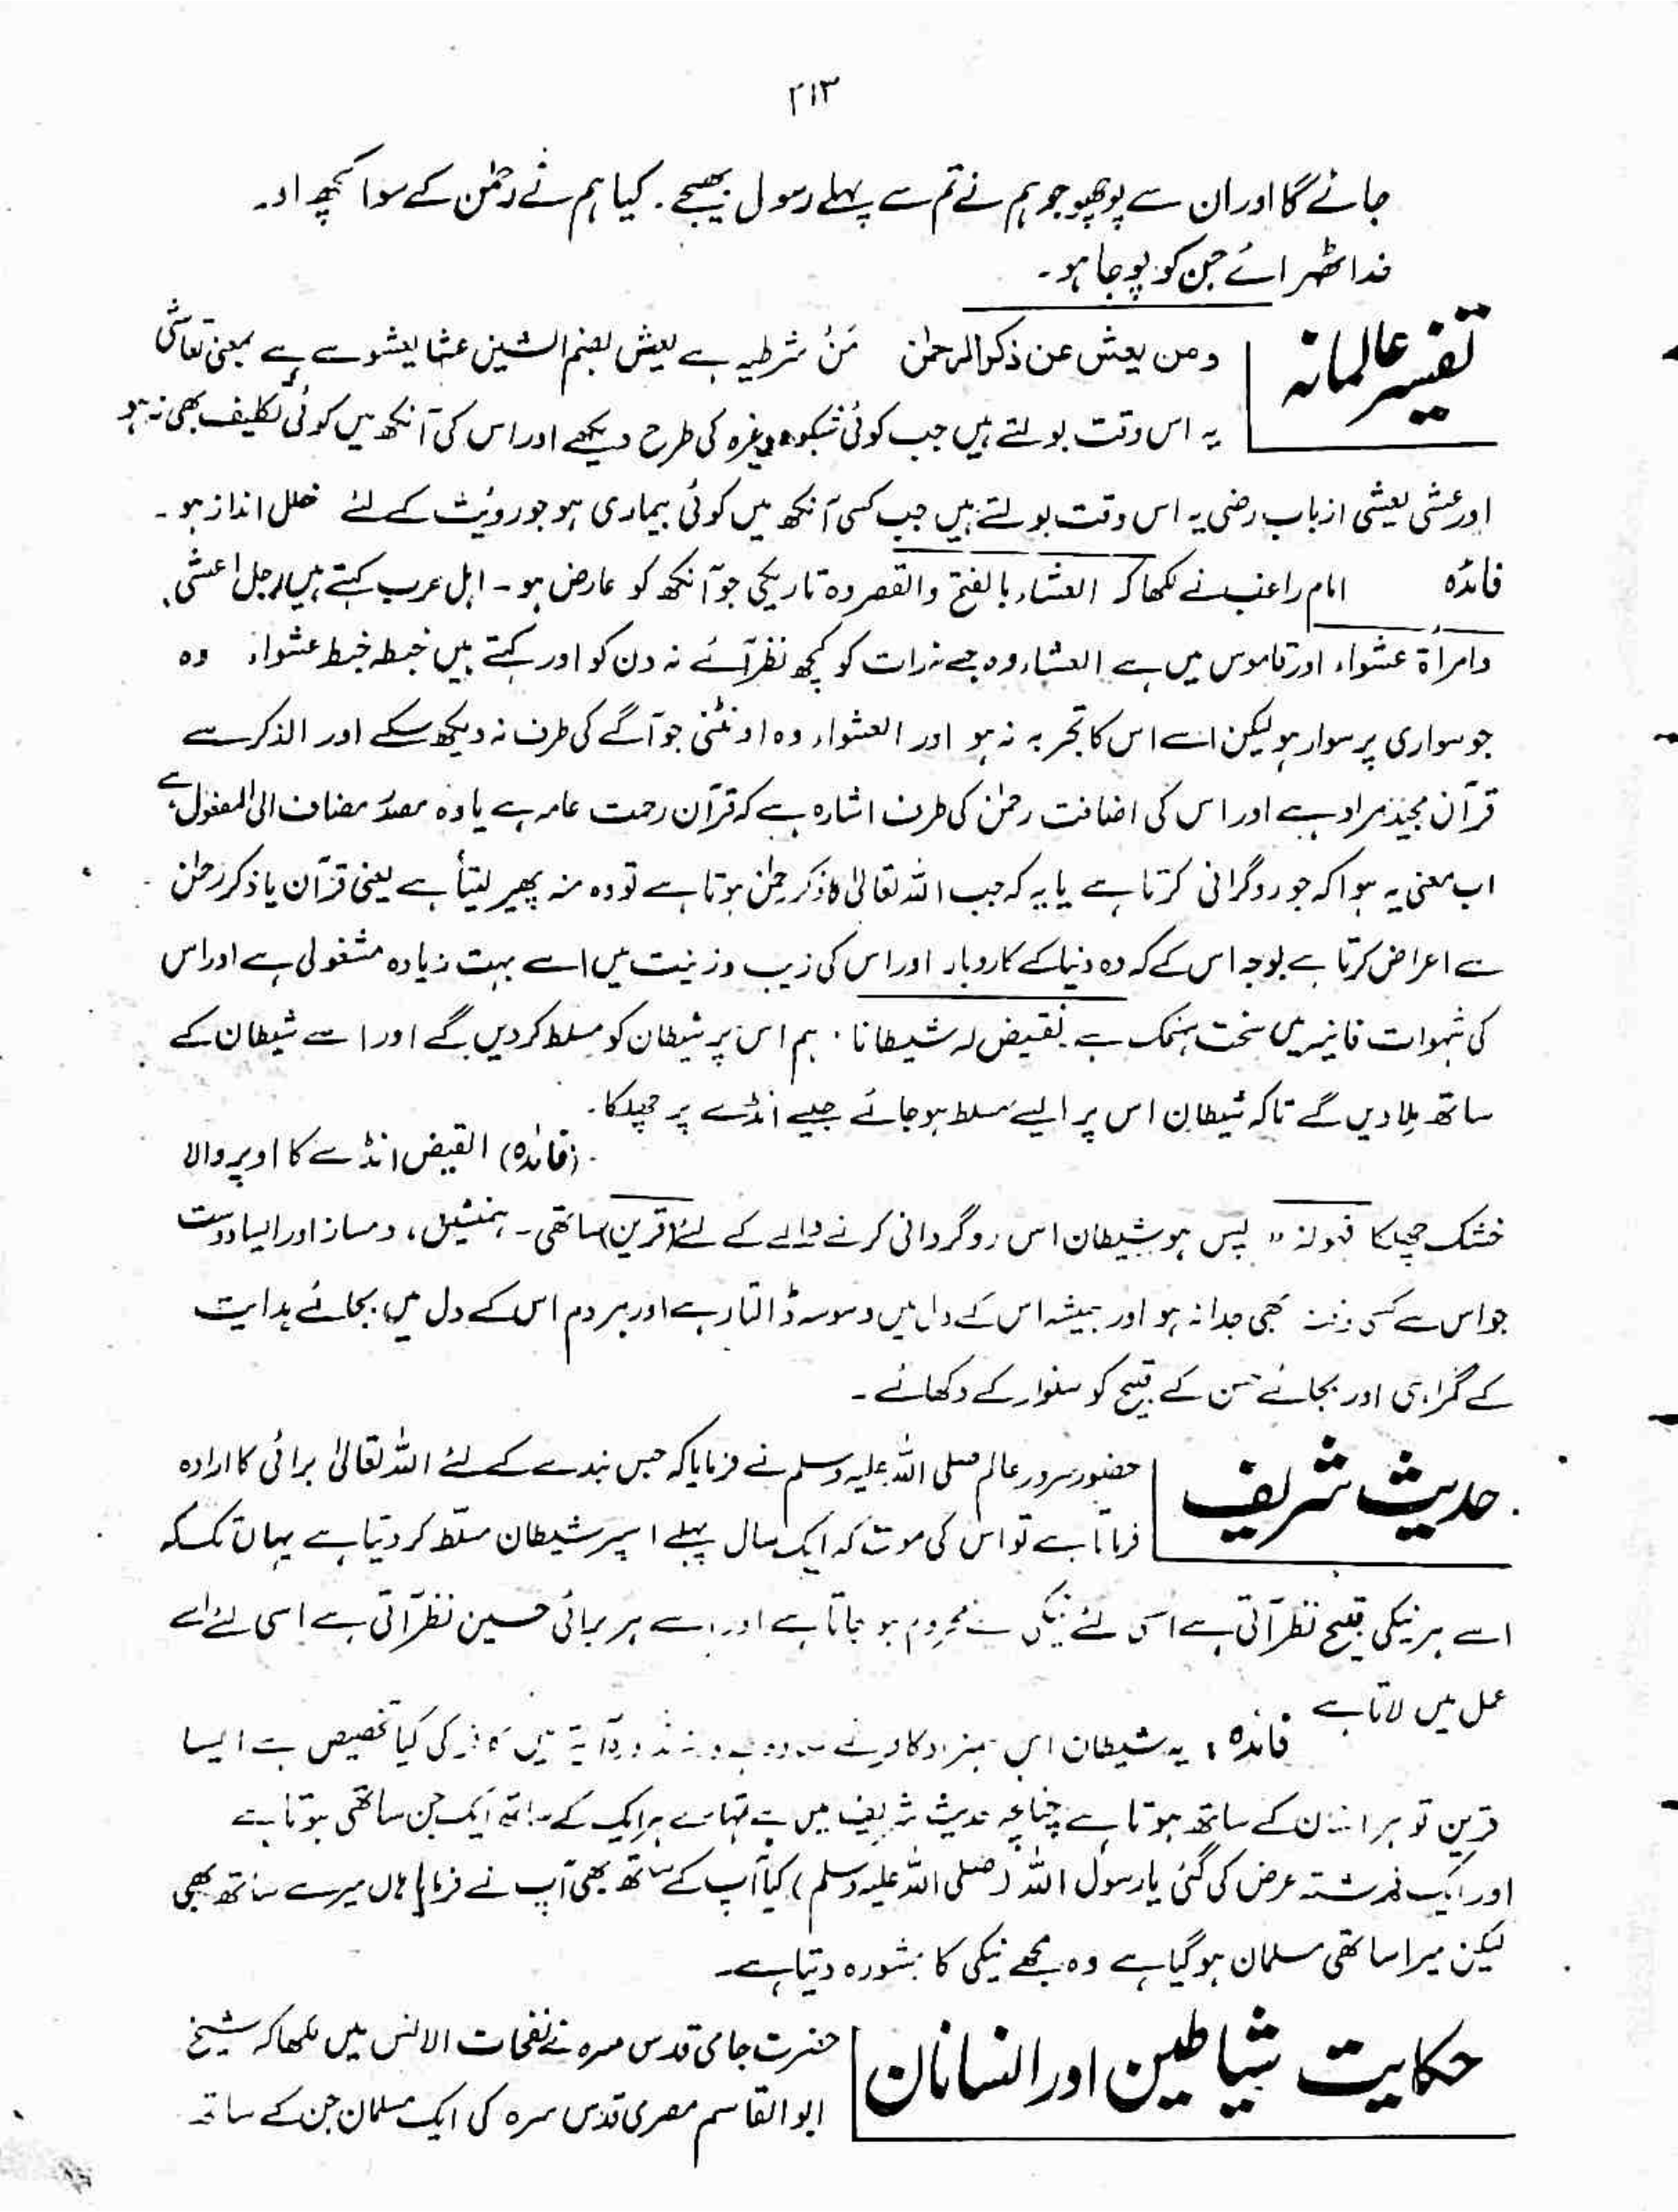 ۲۱۳
جائے گا اور ان سے پوچھو جو ہم نے تم سے پہلے رسول بھیجے۔ کیا ہم نے رحمٰن کے سوا کچھ اور
خدا ٹھہرائے جن کو پوجا ہو۔
تفسیر عالمانہ
ومن یعش عن ذکر الرحمٰن مَنْ شرطیہ ہے یعش بضم الشین عشا یعشو سے ہے بمعنی تعاشی
یہ اس وقت بولتے ہیں جب کوئی شبکوہ وغیرہ کی طرح دیکھے اور اس کی آنکھ میں کوئی تکلیف بھی نہ ہو
اور عشی یعشی از باب رضی یہ اس وقت بولتے ہیں جب کسی آنکھ میں کوئی بیماری ہو جو رویٔت کے لئے خلل انداز ہو۔
فائدہ امام راغب نے لکھا کہ العشاء بالفتح والقصر وہ تاریکی جو آنکھ کو عارض ہو۔ اہل عرب کہتے ہیں رجل اعشی
وامراۃ عشواء اور قاموس میں ہے العشاء وہ جسے نہ رات کو کچھ نظر آئے نہ دن کو اور کہتے ہیں خبطہ خبط عشواء وہ
جو سواری پر سوار ہو لیکن اسے اس کا تجربہ نہ ہو اور العشواء وہ اونٹنی جو آگے کی طرف نہ دیکھ سکے اور الذکر سے
قرآن مجید مراد ہے اور اس کی اضافت رحمٰن کی طرف اشارہ ہے کہ قرآن رحمت عامہ ہے یا وہ مصدر مضاف الی المفعول ہے
اب معنی یہ ہوا کہ جو روگرانی کرتا ہے یا یہ کہ جب اللہ تعالیٰ کا ذکر رحمٰن ہوتا ہے تو وہ منہ پھیر لیتا ہے یعنی قرآن یا ذکر رحمٰن
سے اعراض کرتا ہے بوجہ اس کے کہ وہ دنیا کے کاروبار اور اس کی زیب و زینت میں اسے بہت زیادہ مشغولی ہے اور اس
کی شہوات فانیہ میں سخت منہمک ہے نقیض لہ شیطانا ۔ ہم اس پر شیطان کو مسلط کر دیں گے اور اسے شیطان کے
ساتھ ملا دیں گے تاکہ شیطان اس پر ایسے مسلط ہو جائے جیسے انڈے پر چھلکا۔
(فائدہ) القیض انڈے کا اوپر والا
خشک چھلکا فہولہٗ پس ہو شیطان اس روگردانی کرنے والے کے لئے (قرین) ساتھی۔ ہمنشین، دمساز اور ایسا دوست
جو اس سے کسی وقت بھی جدا نہ ہو اور ہمیشہ اس کے دل میں وسوسہ ڈالتا رہے اور ہر دم اس کے دل میں بجائے ہدایت
کے گمراہی اور بجائے حسن کے قبیح کو سنوار کے دکھائے۔
حدیث شریف
حضور سرور عالم صلی اللہ علیہ وسلم نے فرمایا کہ جس بندے کے لئے اللہ تعالیٰ برائی کا ارادہ
فرماتا ہے تو اس کی موت کہ ایک سال پہلے اسپر شیطان مسلط کر دیتا ہے یہاں تک کہ
اسے ہر نیکی قبیح نظر آتی ہے اسی لئے نیکی سے محروم ہو جاتا ہے اور اسے ہر برائی حسین نظر آتی ہے اسی لئے اسے
عمل میں لاتا ہے
فائدہ : یہ شیطان اس ہمزاد کافر کی کیا تخصیص ہے ایسا
قرین تو ہر انسان کے ساتھ ہوتا ہے چنانچہ حدیث شریف میں ہے تمہارے ہر ایک کے ساتھ ایک جن ساتھی ہوتا ہے
اور ایک فرشتہ عرض کی گئی یا رسول اللہ (صلی اللہ علیہ وسلم) کیا آپ کے ساتھ بھی آپ نے فرمایا ہاں میرے ساتھ بھی
لیکن میرا ساتھی مسلمان ہو گیا ہے وہ مجھے نیکی کا مشورہ دیتا ہے۔
حکایت شیاطین اور انسانان
حضرت جامی قدس سرہ نے نفحات الانس میں لکھا کہ شیخ
ابوالقاسم مصری قدس سرہ کی ایک مسلمان جن کے ساتھ